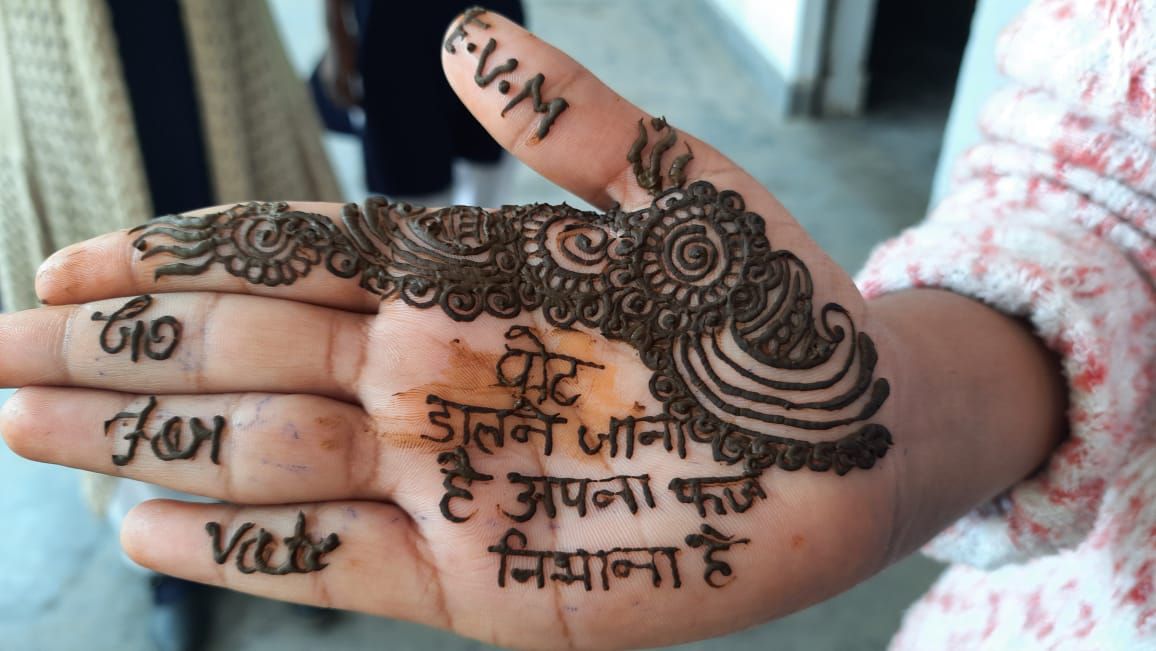 E.V.M
go
For
Vote
वोट
डालने जाना
है अपना फर्ज
निभाना है